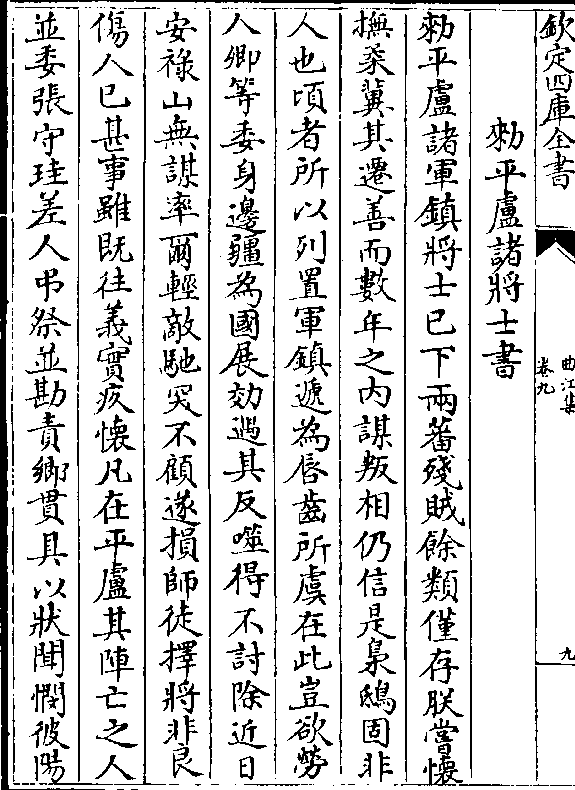 欽定四庫全書
曲江集
卷九
九
勅平盧諸將士書
勅平盧諸軍鎮將士已下兩蕃殘賊餘類僅存朕嘗懷
撫柔冀其遷善而數年之內謀叛相仍信是梟鴟固非
人也頃者所以列置軍鎮遞為唇齒所虞在此豈欲勞
人卿等委身邊疆為國展効遏其反噬得不討除近日
安祿山無謀率爾輕敵馳突不顧遂損師徒擇將非良
傷人已甚事雖既往義實疚懷凡在平盧其陣亡之人
並委張守珪差人弔祭並勘責鄉貫具以狀聞憫彼傷